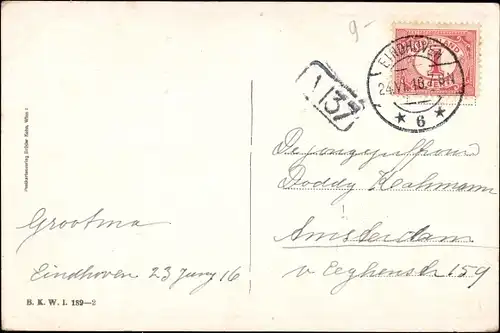 9-
NEDERLAND
1
EINDHOVEN
24.VI.16. 7-8N
★ 6 ★
1
137
De jongejuffrouw
Doddy Kahmann
Amsterdam
v Eeghenstr 159
Grootma
Eindhoven 23 Juny 16
Postkartenverlag Brüder Kohn, Wien I
B. K. W. I. 189—2